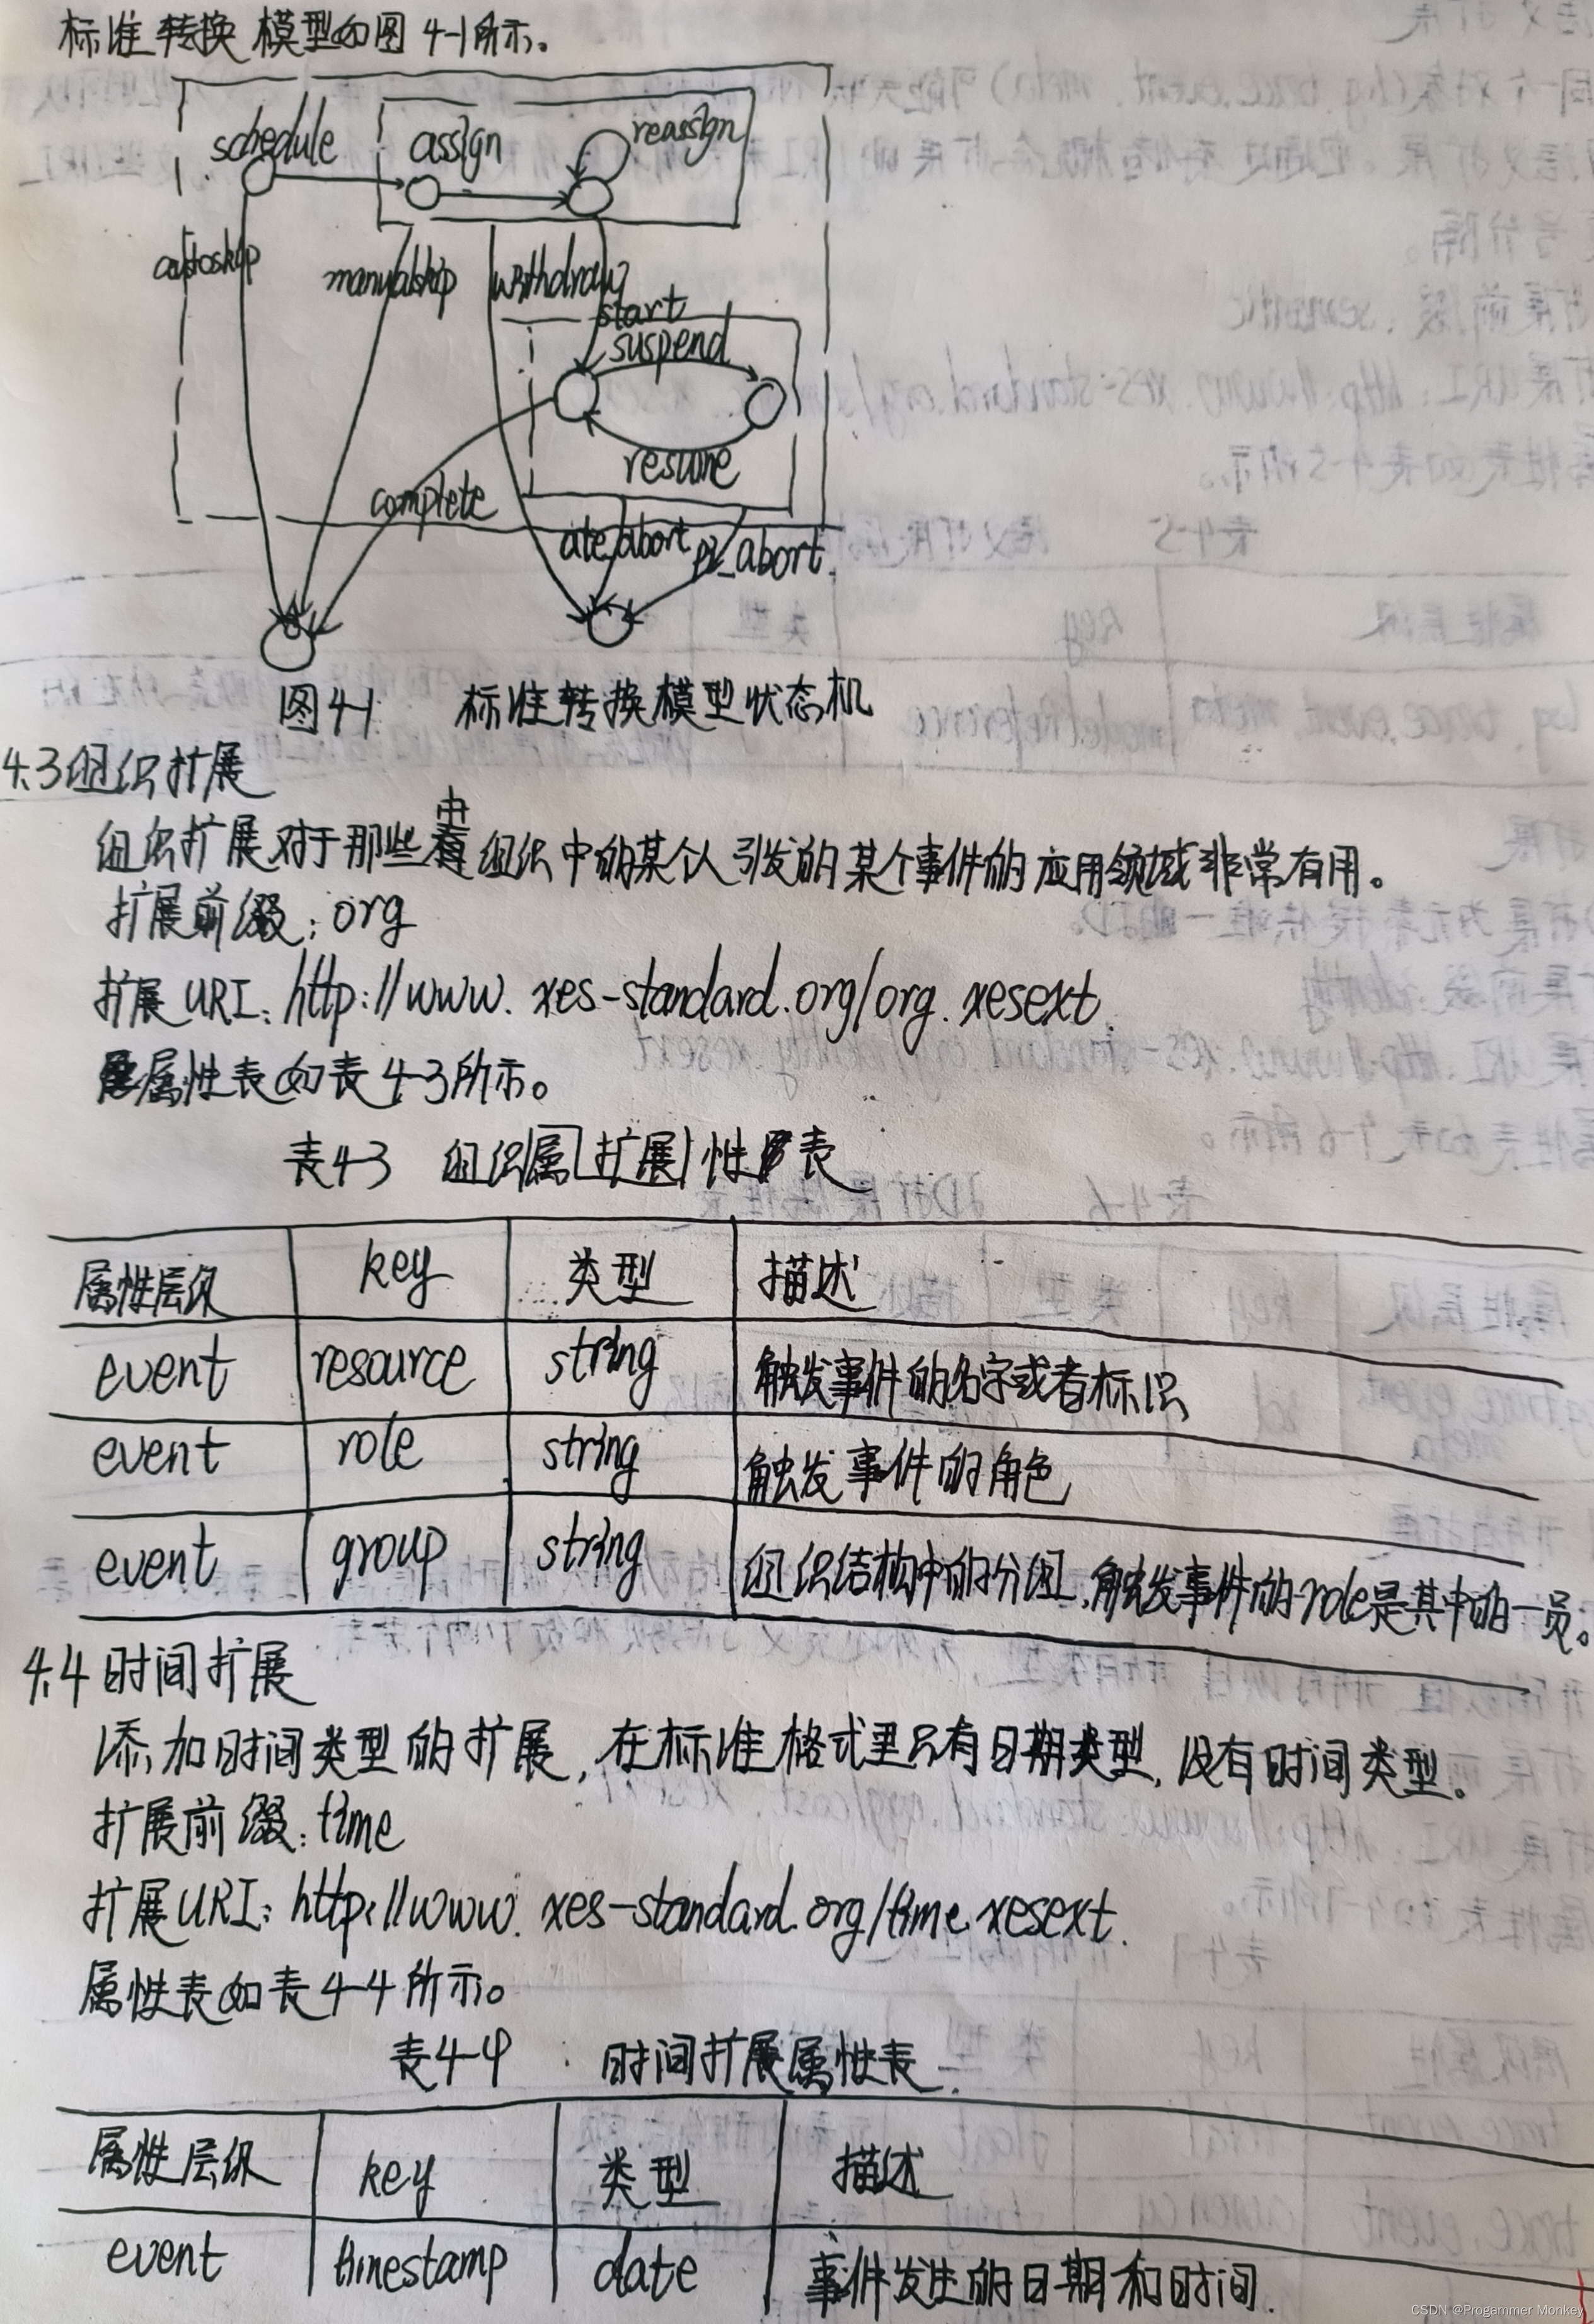 标准转换模型如图4-1所示。
schedule assign reassign
autoskip manualskip withdraw
start
suspend
resume
complete
ate_abort pi_abort
图4-1 标准转换模型状态机
4.3组织扩展
组织扩展对于那些由组织中的某个人引发的某个事件的应用领域非常有用。
扩展前缀:org
扩展URI:http://www.xes-standard.org/org.xesext.
属性表如表4-3所示。
表4-3 组织属扩展性表
属性层级 key 类型 描述
event resource string 触发事件的名字或者标识
event role string 触发事件的角色
event group string 组织结构中的分组,触发事件的role是其中的一员。
4.4时间扩展
添加时间类型的扩展,在标准格式里只有日期类型,没有时间类型。
扩展前缀:time
扩展URI:http://www.xes-standard.org/time.xesext.
属性表如表4-4所示。
表4-4 时间扩展属性表
属性层级 key 类型 描述
event timestamp date 事件发生的日期和时间.
CSDN @Progammer Monkey